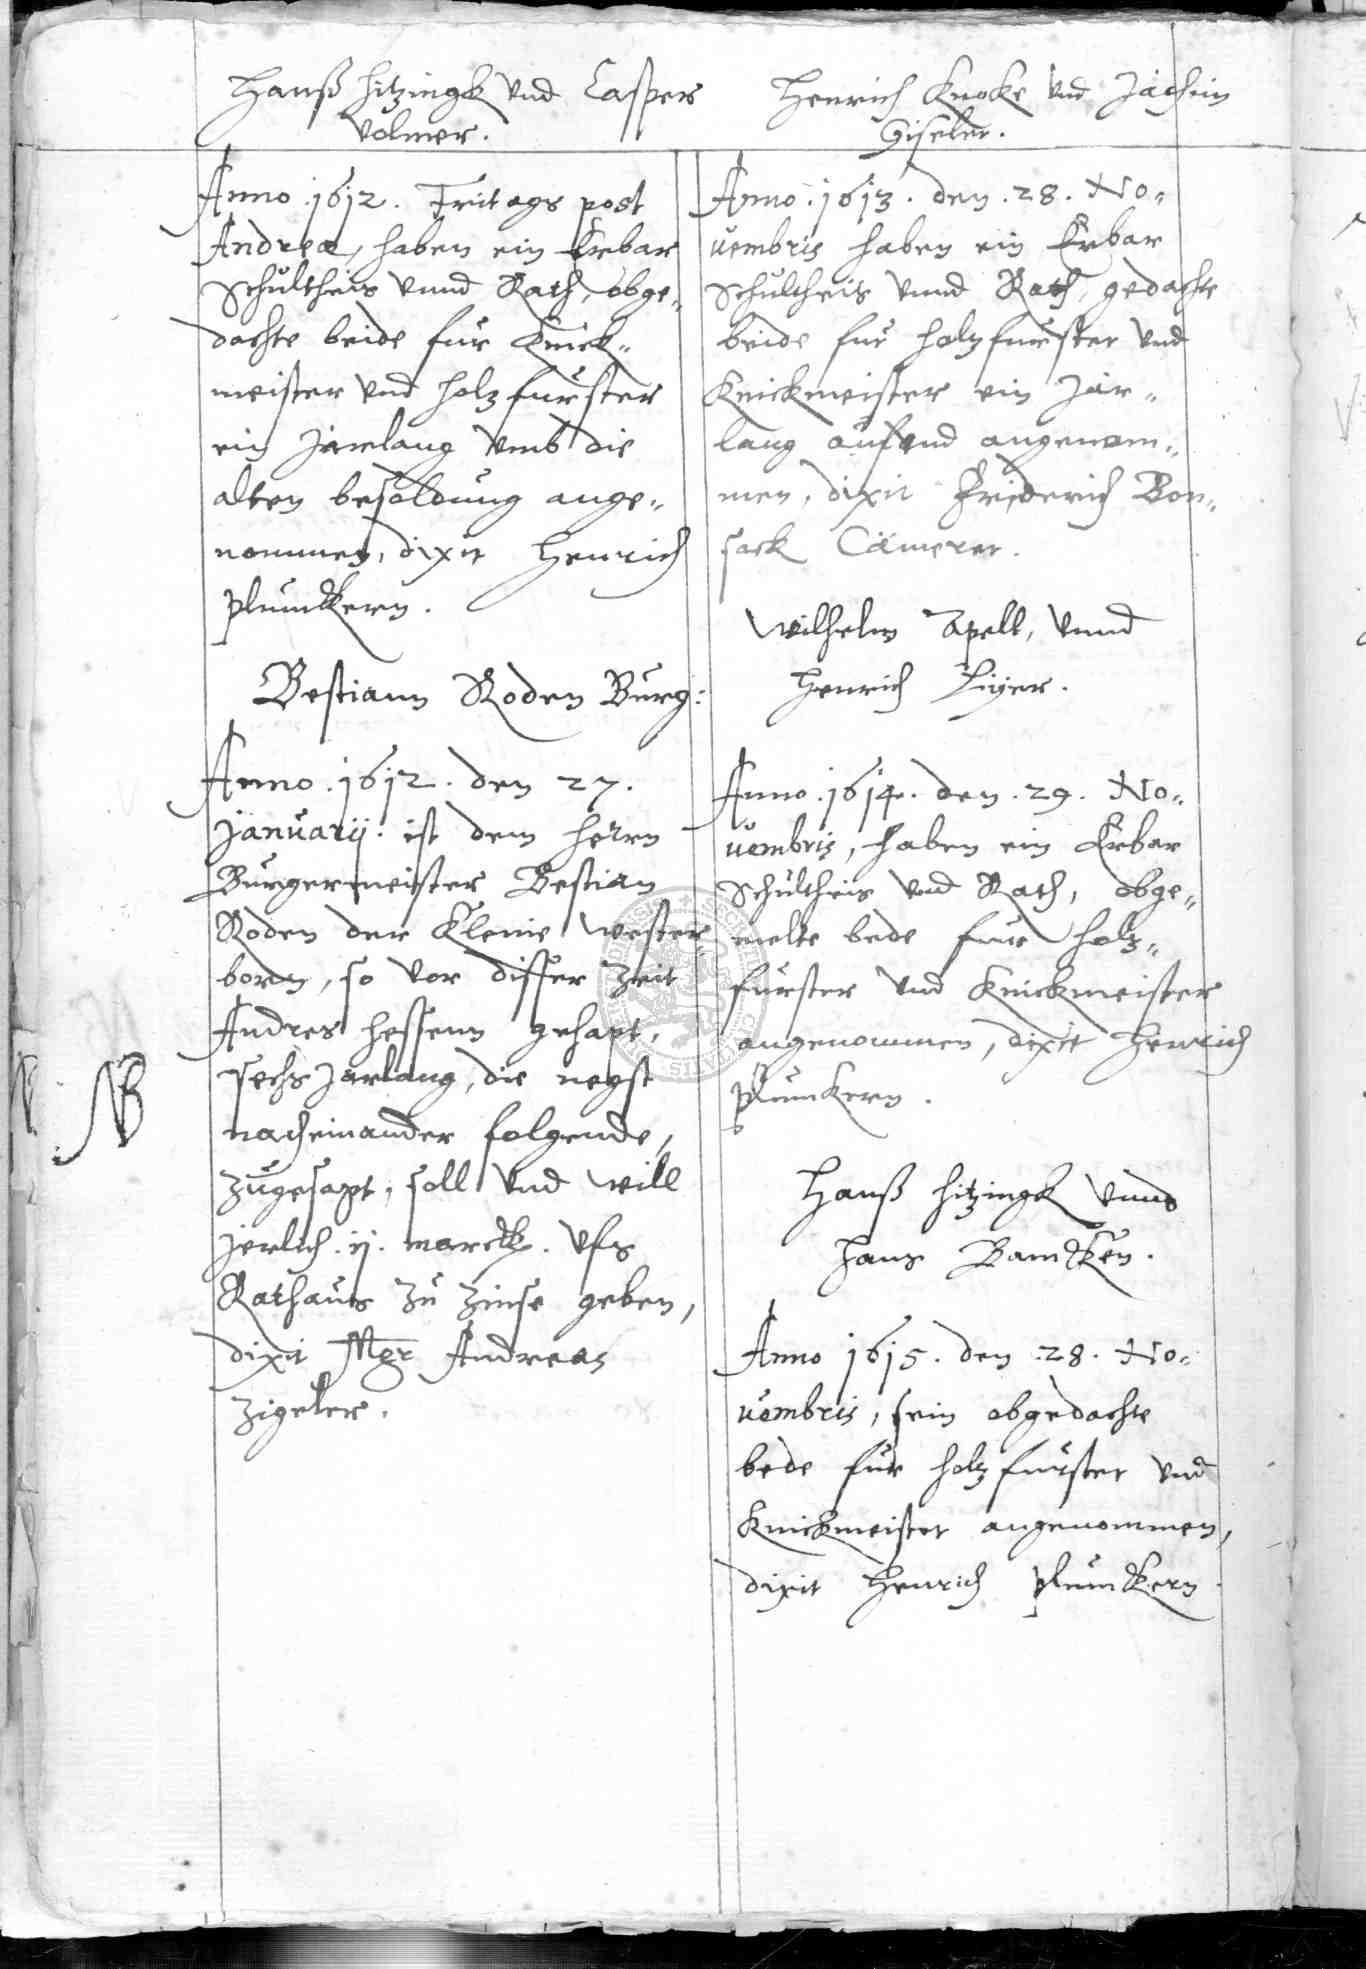 Hanß Hitzingk vnd Casper
Volmer.
Anno .1612. Freitags post
Andreæ, haben ein Erbar
Schultheis vnnd Rath, obge„
dachte beide für Knick„
meister vnd holtzfürster
ein Jarelang vmb die
alten besoldung ange„
nommen, dixit Henrich
Plunckern.
Bestiann Roden Burg:
Anno .1612. den 27.
Januarij. ist dem Herrn
Burgermeister Bestian
Roden der Kleine Wester„
born, so vor disser Zeit
Andres Hessenn gehapt,
sechs Jarlang, die negst
nacheinander folgende,
zugesagt, soll vnd will
Jerlich .ij. marck. vfs
Rathaus zu Zinse geben,
dixit Mgr Andreas
Zigeler.
NB
Henrich Knoke vnd Jachim
Giseler.
Anno .1613. den .28. No„
uembris haben ein Erbar
Schultheis vnnd Rath, gedachte
beide für holtzfürster vnd
Knickmeister ein Jar„
lang auf vnd angenom„
men, dixit Friderich Bon„
sack Cämerer.
Wilhelm Apell, vnnd
Henrich Liyer.
Anno .1614. den .29. No„
uembris, haben ein Erbar
Schultheis vnd Rath, obge„
melte bede fur holtz„
fürster vnd Knickmeister
angenommen, dixit Henrich
Plunkern.
Hanß Hitzingk vnnd
Hans Bamcken.
Anno 1615. den .28. No„
uembris, sein obgedachte
bede für holtzfürster vnd
Knickmeister angenommen,
dixit Henrich Plunckern.